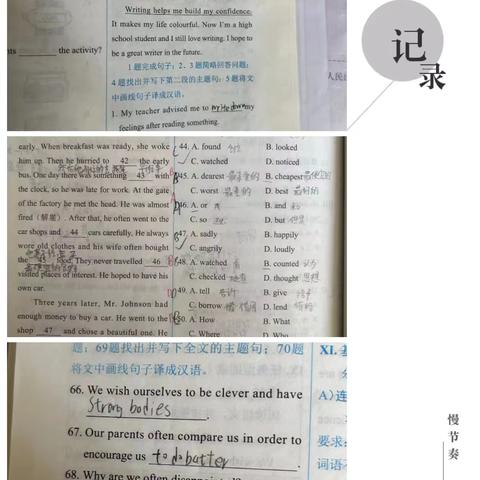 Writing helps me build my confidence.
It makes my life colourful. Now I'm a high
school student and I still love writing. I hope to
be a great writer in the future.
nts ______ the activity?
1题完成句子;2、3题简略回答问题;
4题找出并写下第二段的主题句;5题将文
中画线句子译成汉语。
1. My teacher advised me to write down my
feelings after reading something.
记
录
early. When breakfast was ready, she woke
him up. Then he hurried to 42 the early
bus. One day there was something 43 with
the clock, so he was late for work. At the gate
of the factory he met the head. He was almost
fired (解雇). After that, he often went to the
car shops and 44 cars carefully. He always
wore old clothes and his wife often bought
the 45 food. They never travelled 46
visited places of interest. He hoped to have his
own car.
Three years later, Mr. Johnson had
enough money to buy a car. He went to the
shop 47 and chose a beautiful one. He
44. A. found B. looked
C. watched D. noticed
45. A. dearest B. cheapest
C. worst D. best 最好的
46. A. or B. and 和
C. so D. but 但是
47. A. sadly B. happily
C. angrily D. loudly
48. A. watched B. counted
C. checked D. thought 思想
49. A. tell 告诉 B. give
C. borrow D. lend
50. A. How B. What
C. Where D. Who
题;69题找出并写下全文的主题句;70题
将文中画线句子译成汉语。
66. We wish ourselves to be clever and have
Strong bodies.
67. Our parents often compare us in order to
encourage us to do butter.
68. Why are we often disappointed?
XI.
A)连
要求:
词语不
慢
节
奏